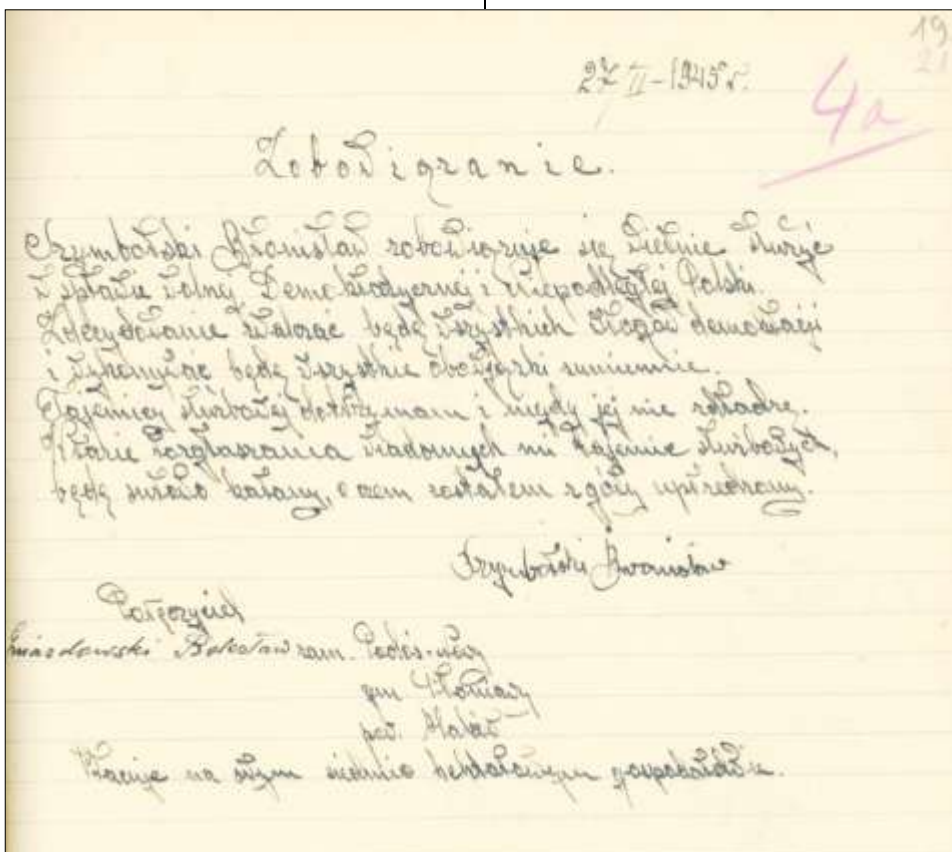 19
21
27 II - 1945 r.
4a
Zobowiązanie.
Szymborski Bronisław zobowiązuje się wiernie służyć
w sprawie wolnej, Demokratycznej i Niepodległej Polski.
Zdecydowanie zwalczać będę wszystkich wrogów demokracji
i wykonywać będę wszystkie obowiązki sumiennie.
Tajemnicy służbowej dotrzymam i nigdy jej nie zdradzę.
W razie rozgłaszania wiadomych mi tajemnic służbowych,
będę surowo karany, o czem zostałem z góry uprzedzony.
Szymborski Bronisław
Poręczyciel
Gwiazdowski Bolesław zam.
gm.
pow.
Pracuje na swym siedmio hektarowym gospodarstwie.